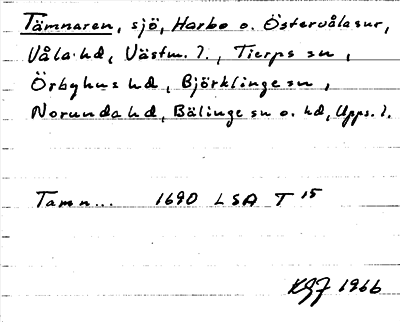 Tämnaren, sjö, Harbo o. Östervåla snr,
Våla hd, Västm. l., Tierps sn,
Örbyhus hd, Björklinge sn,
Norunda hd, Bälinge sn o. hd, Upps. l.
Tamn... 1690 LSA T 15
KGJ 1966